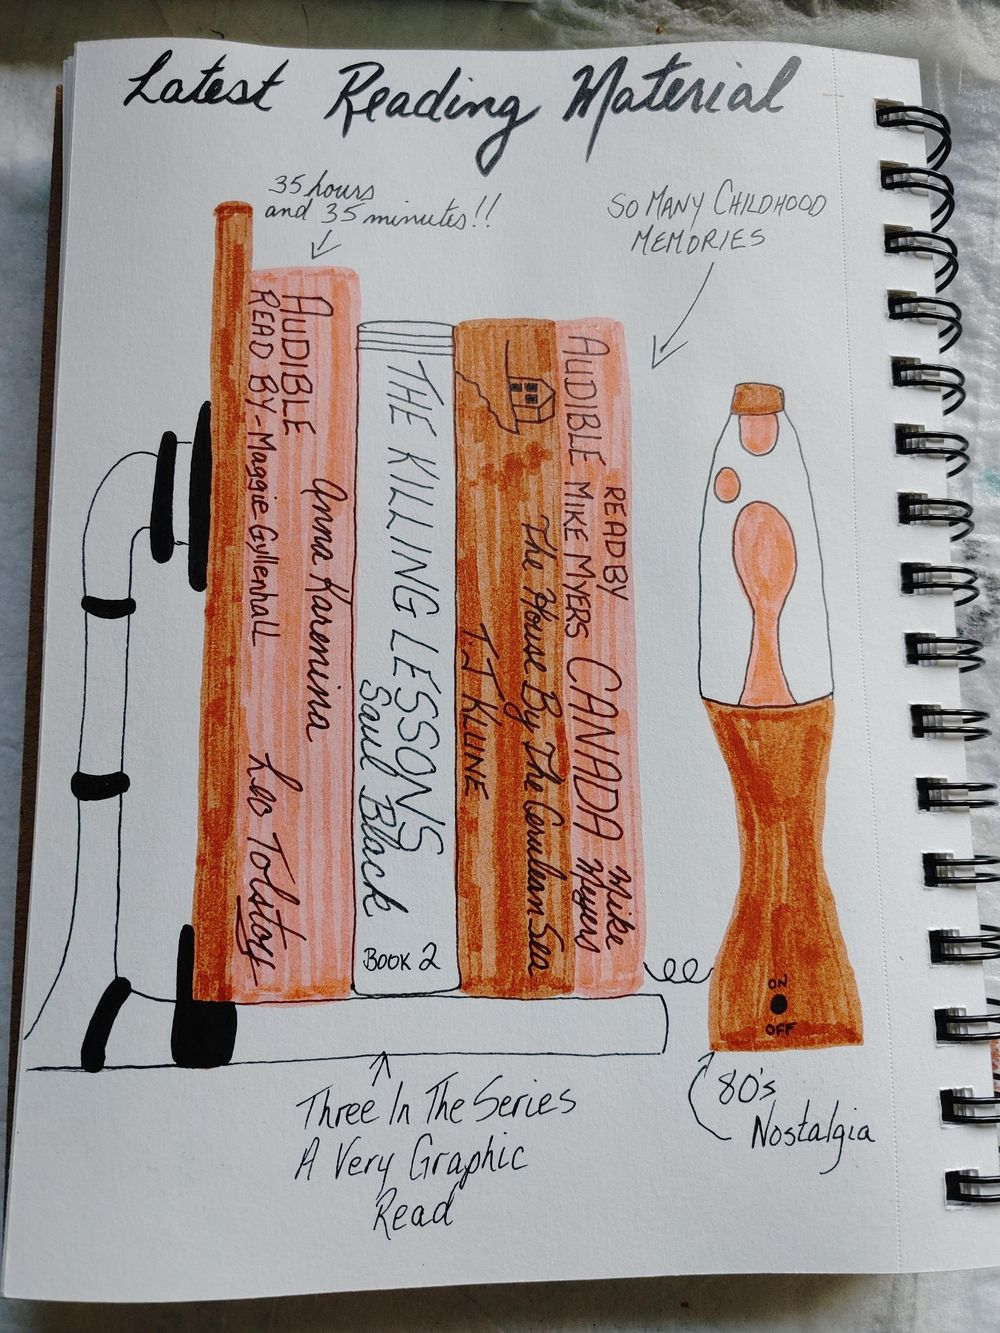 Latest Reading Material
35 hours
and 35 minutes!!
SO MANY CHILDHOOD
MEMORIES
AUDIBLE
READ BY - Maggie GyllenhALL
Anna Karenina Leo Tolstoy
THE KILLING LESSONS
Saul Black
BOOK 2
The House By The Cerulean Sea
TJ KLUNE
AUDIBLE
READ BY
MIKE MYERS
CANADA Mike
Meyers
ON
OFF
Three In The Series
A Very Graphic
Read
80's
Nostalgia